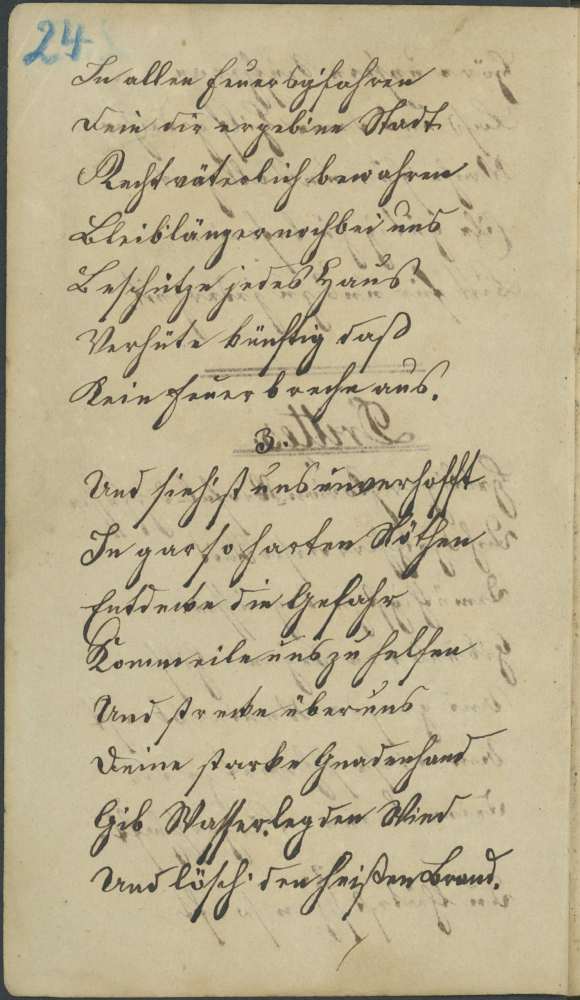 24
In allen Feuersgefahren
Dein dir ergebene Stadt
Recht väterlich bewahren
Bleib länger noch bei uns
Beschütze jedes Haus
Verhüte künftig daß
Kein Feuer breche aus.
3.
Und siehst uns unverhofft
In gar so harten Nöthen
Entdecke die Gefahr
Komm eile uns zu helfen
Und strecke über uns
Deine starke Gnadenhand
Gib Wasser, leg den Wind
Und lösch den heißen Brand.